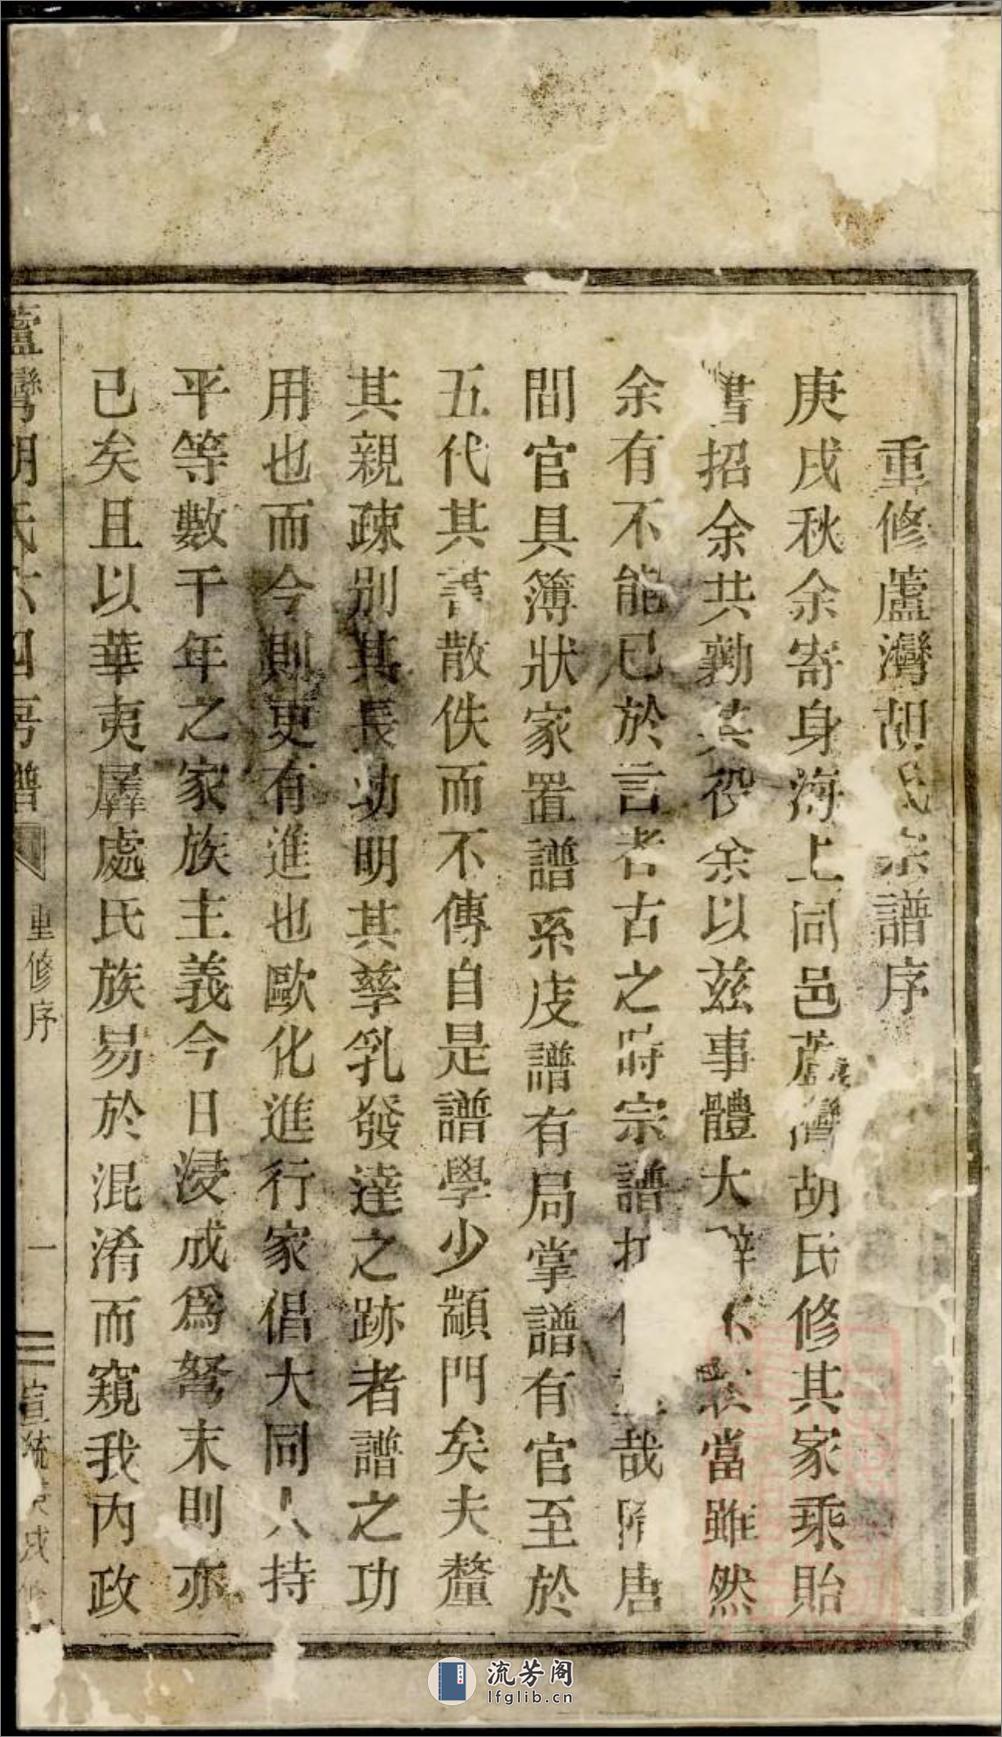 重修蘆灣胡氏宗譜序
庚戌秋余寄身海上同邑蘆灣胡氏修其家乘貽
書招余共勷其役余以茲事體大辭不敢當雖然
余有不能已於言者古之時宗譜哉隋唐
間官具簿狀家置譜系庋譜有局掌譜有官至於
五代其書散佚而不傳自是譜學少顓門矣夫釐
其親疎別其長幼明其孳乳發達之跡者譜之功
用也而今則更有進也歐化進行家倡大同人持
平等數千年之家族主義今日浸成為弩末則亦
已矣且以華夷羼處氏族易於混淆而窺我內政
蘆灣胡氏六四房譜 重修序 一 宣統庚戌
流芳阁
lfglib.cn